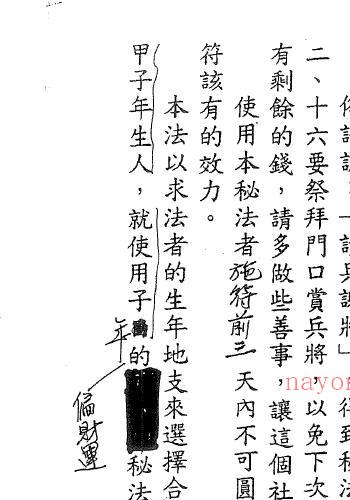 兵調將」
二、十六要祭拜門口賞兵將，以免下次
有剩餘的錢，請多做些善事，讓這個社
使用本秘法者施符前三天內不可圓
符該有的效力。
本法以求法者的生年地支來選擇合
甲子年生人，就使用子的秘法
年
偏財運
nayo